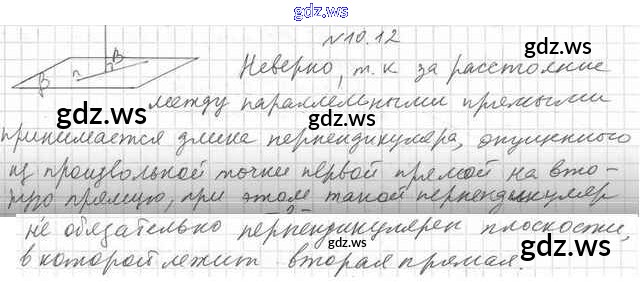 gdz.ws
№10.12
В
n
β
Неверно, т.к за расстояние
gdz.ws
между параллельными прямыми
gdz.ws gdz.ws
принимается длина перпендикуляра, опущенного
из произвольной точки первой прямой на вто-
рую прямую, при этом такой перпендикуляр
gdz.ws gdz.ws gdz.ws
не обязательно перпендикулярен плоскости,
gdz.ws
в которой лежит вторая прямая.